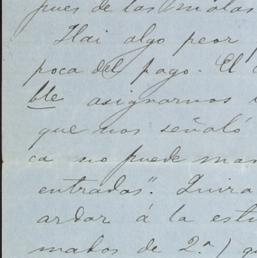 pues de las malas
Hai algo peor
poca del pago. El
ble asignarnos
que nos señaló
ca no puede man
entradas". Quira
ardor á la estu
mados de 2.ª) q